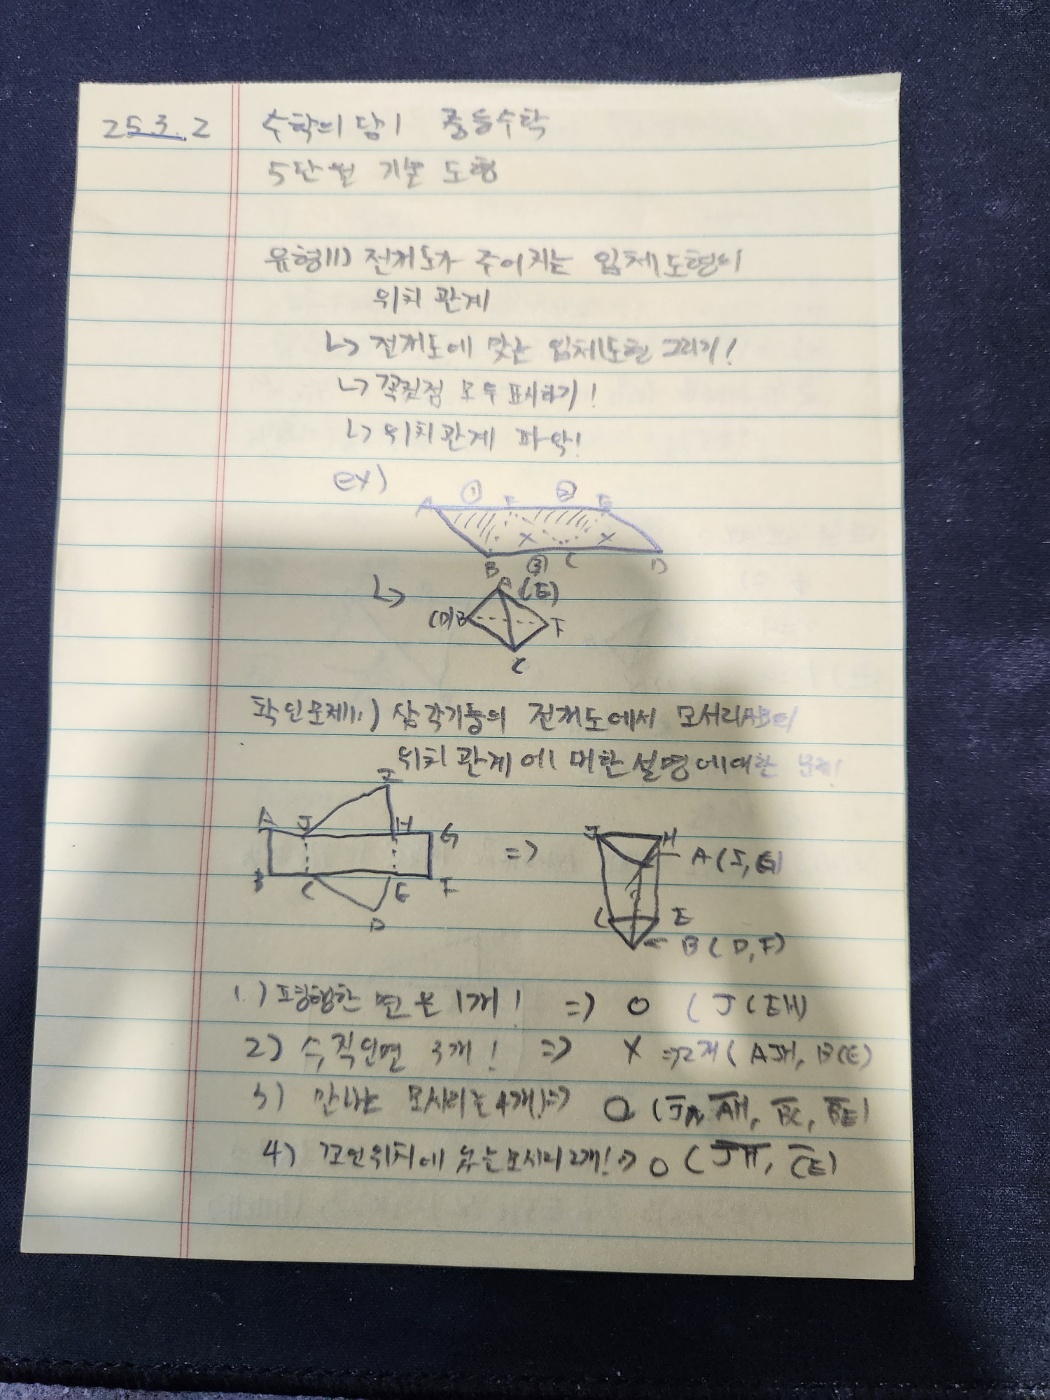 25.3.2 수학의 답1 중등수학
5단원 기본 도형
유형11) 전개도가 주어지는 입체도형의
위치 관계
↳ 전개도에 맞는 입체도형 그리기!
↳ 꼭짓점 모두 표시하기!
↳ 위치관계 파악!
ex)
A ① F ② E
B ③ C D
↳ A(E)
(D)B F
C
확인문제11.) 삼각기둥의 전개도에서 모서리AB의
위치 관계에 대한 설명에대한 문제!
I
A J H G
B C E F
D
=> J H
A(I,G)
C E
B(D,F)
1.) 평행한 면은 1개! => O (JCEH)
2) 수직인면 3개! => X => 2개(AJH, BCE)
3) 만나는 모서리는 4개! => O (JA, AH, BC, BE)
4) 꼬인위치에 있는모서리 2개! => O (JH, CE)